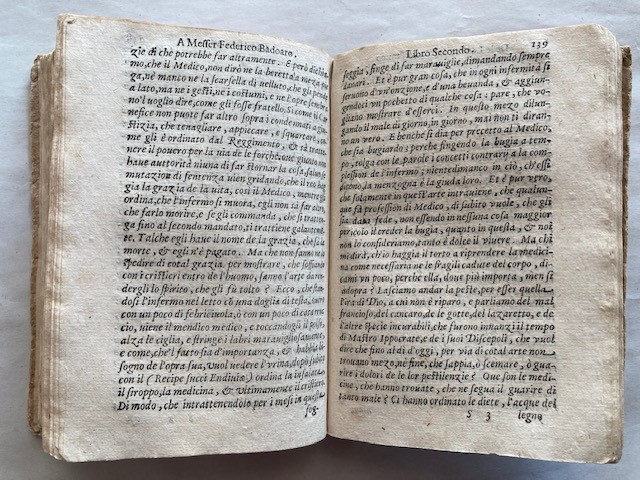 A Messer Federico Badoaro.
zie di che potrebbe far altramente. E però dichia
mo, che il Medico, non dirò ne la beretta, a mezza pie
ga, nè manco ne la scarsella di uelluto, che gli pende
a lato, ma ne i gesti, ne i costumi, e ne l'opre sembra
no'l uoglio dire, come gli fosse fratello. Si come il Car
nefice non puote far altro sopra i condennati a giu
stitia, che tenagliare, appiccare, e squartare, co-
me gli è ordinato dal Reggimento, & tà tratte
nere il pouero per la uia de le forche, que giunto non
haue auttorità niuna di far stornar la cosa, saluo la
mutation di sentenza uien gridando, che il reo hog
gia la gratia de la uita, così il Medico, mentre gli
ordina, che l'infermo si muora, egli non sà far altro
che farlo morire, e se gli commanda, che si tratten
ga fino al secondo mandato, ti trattiene galantemen
te. Talche egli haue il nome de la gratia, che si a la
morte, & egli n'è pagato. Ma che non fanno ne lo
spedire di cotal gratia per mostrare, che soffiando
con i cristieri entro de l'huomo, sanno l'arte da ren
dergli lo spirito, che gli fù tolto? Ecco, che stan-
dosi l'infermo nel letto cō una doglia di testa, ouero
con un poco di febriciuola, ò con un poco di catarro-
cio, uiene il mendico medico, e toccandogli il polso,
alza le ciglia, e stringe i labri marauigliosamente,
e come, che'l fatto sia d'importanza, & habbia bi-
sogno de l'opra sua, uuol uedere l'vrina, dopò subito
con il (Recipe succi Endiuiæ) ordina la insalata,
il siroppo, la medicina, & vltimamente il cristiero.
Di modo, che intrattenendolo per i mesi in questa
fog-
Libro Secondo. 139
foggia, finge di far marauiglie, dimandando sempre
danari. Et è pur gran cosa, che in ogni infermità si
seruono d'vn'enzione, e d'una beuanda, & aggiun-
gendoci vn pochetto di qualche cosa: pare, che vo-
gliano mostrare d'esserci. In questo mezo dilun-
gando il male di giorno, in giorno, mai non ti diran-
no un vero. E benche si dia per precetto al Medico,
che sia bugiardo: perche fingendo la bugia a tem-
po, tolga con le parole i concetti contrarij a la com-
plession de l'infermo, nientedimanco in ciò, ch'essi
dicono, la menzogna è la giuda loro. Et è pur vero,
che solamente in quest'arte intrauiene, che qualun-
que fà profession di Medico, di subito vuole, che gli
sia data fede, non essendo in nessuna cosa maggior
pericolo il creder la bugia, quanto in questa, & noi
non lo consideriamo, tanto è dolce il viuere. Ma chi
mi dirà, ch'io haggia il torto a riprendere la medici-
na come necessaria ne le fragili cadute del corpo, di-
cami vn poco, perche ella, doue più importa, men si
adopra? Lasciamo andar la peste, per esser quella
l'ira di Dio, a cui non è riparo, e parliamo del mal
francioso, del cancaro, de le gotte, del lazaretto, e de
l'altre specie incurabili, che furono innanzi il tempo
di Mastro Ippocrate, e de i suoi Discepoli, che vuol
dire che fino al dì d'oggi, per via di cotal arte non
trouano mezo, nè fine, che sappia, ò scemare, ò gua-
rire i dolori de le lor pestilenzie? Que son le medi-
cine, che hanno trouate, che ne segua il guarire di
tanto male? Ci hanno ordinato le diete, l'acque del
S 3 legno